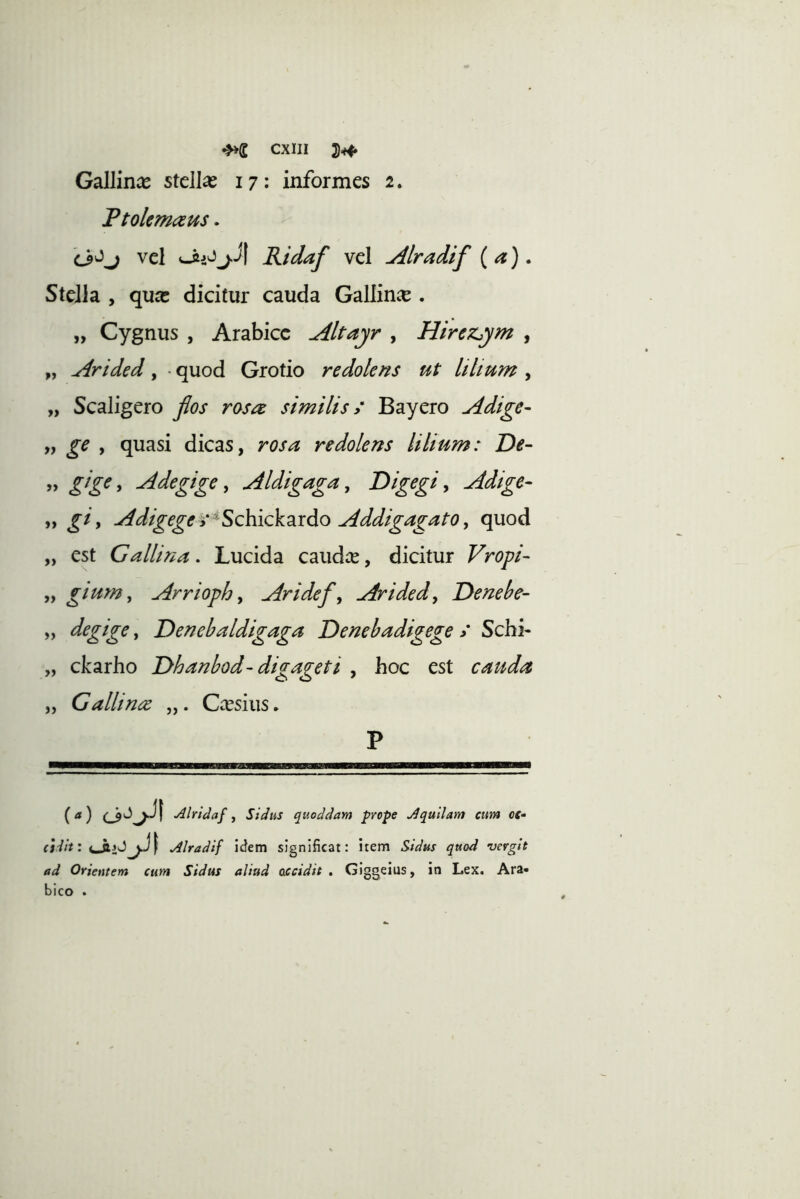 CXIII
Gallinæ stellæ 17: informes 2.
Ptolemæus.
ردف vel الرديف Ridaf vel Alradif (a).
Stella , quæ dicitur cauda Gallinæ .
„ Cygnus , Arabice Altayr , Hirezym ,
„ Arided , quod Grotio redolens ut lilium ,
„ Scaligero flos rosæ similis; Bayero Adige-
„ ge , quasi dicas, rosa redolens lilium: De-
„ gige, Adegige, Aldigaga, Digegi, Adige-
„ gi, Adigege; Schickardo Addigagato, quod
„ est Gallina. Lucida caudæ, dicitur Vropi-
„ gium, Arrioph, Aridef, Arided, Denebe-
„ degige, Denebaldigaga Denebadigege; Schi-
„ ckarho Dhanbod-digageti , hoc est cauda
„ Gallinæ „. Cæsius.
P
(a) الردف Alridaf, Sidus quoddam prope Aquilam cum oc-
cidit: الرديف Alradif idem significat: item Sidus quod vergit
ad Orientem cum Sidus aliud occidit . Giggeius, in Lex. Ara-
bico .